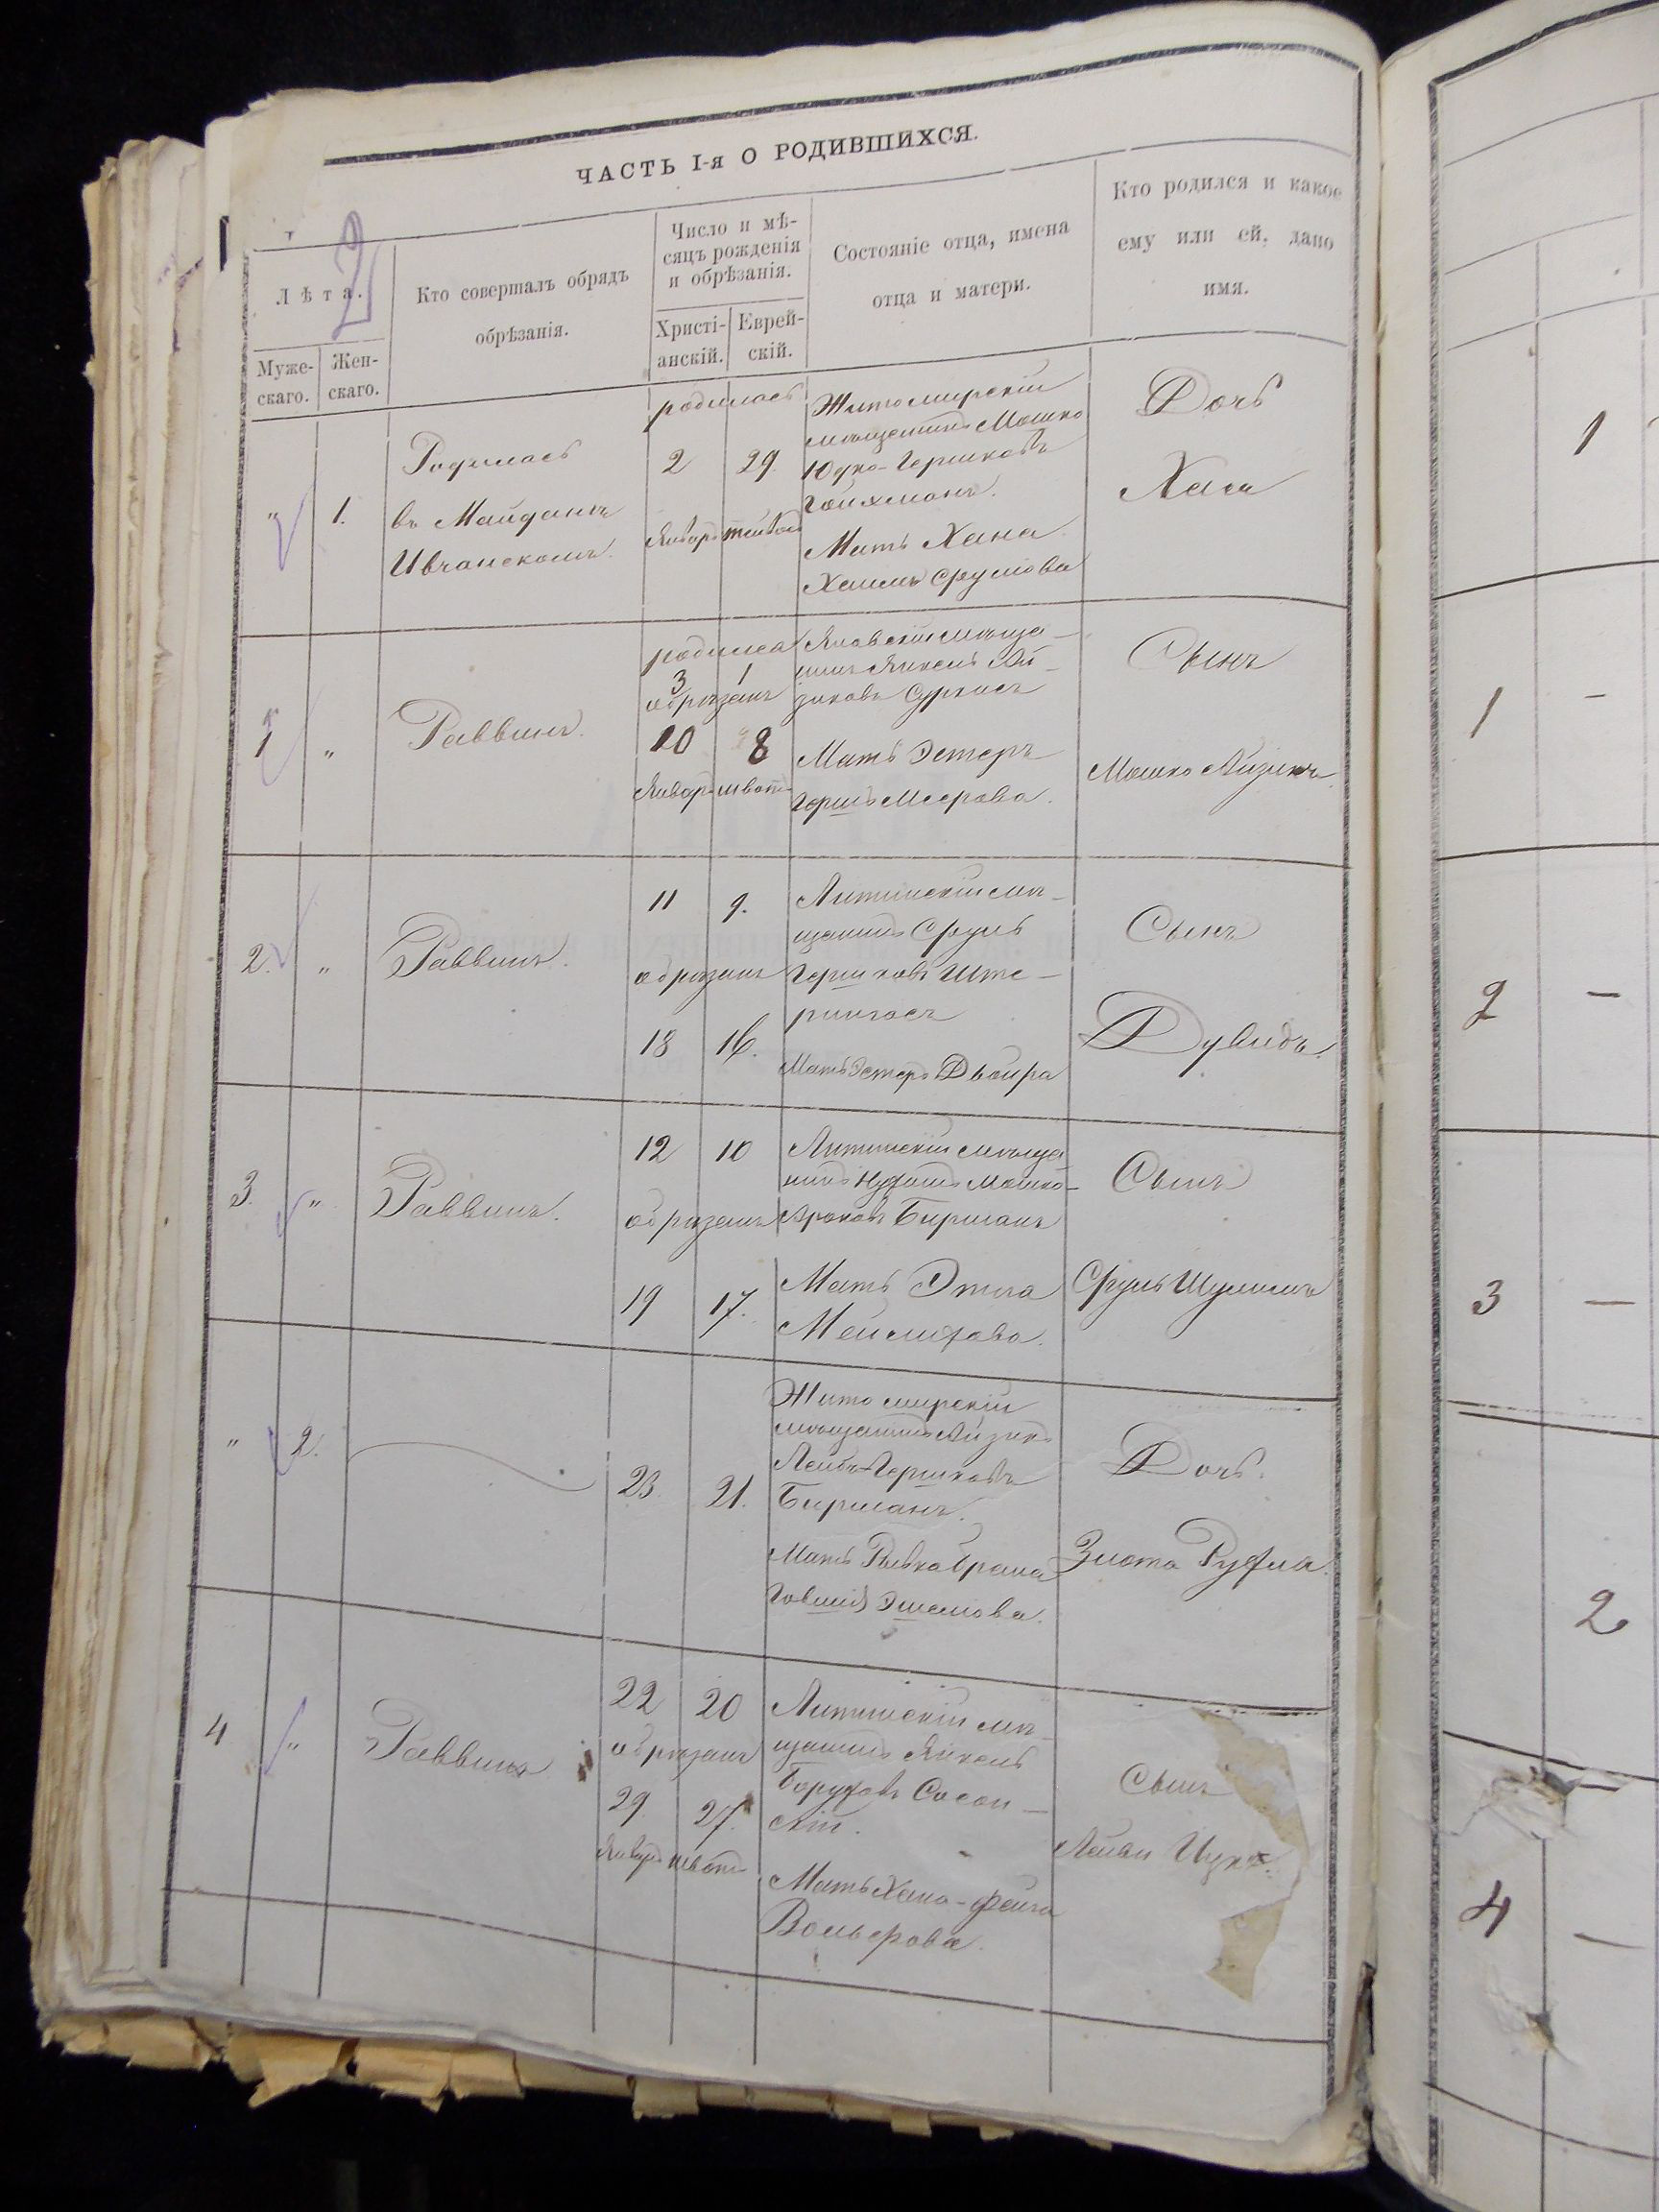 ЧАСТЬ I-я О РОДИВШИХСЯ.
Лѣта.
2
Муже-
скаго.
Жен-
скаго.
Кто совершалъ обрядъ
обрѣзанія.
Число и мѣ-
сяцъ рожденія
и обрѣзанія.
Христі-
анскій.
Еврей-
скій.
Состояніе отца, имена
отца и матери.
Кто родился и какое
ему или ей, дано
имя.
" 1.
Родилась
въ Майданѣ
Ивчанскомъ.
родилась
2 29.
Январь
Житомирскій
мѣщанинъ Мошко
Юдко-Гершковъ
Мать Хана
Хаимъ Срулова
Дочь
Хая
1 "
Раввинъ.
родился
3 1
обрѣзанъ
10 8
Январь шватъ
Яновскій мѣща-
нинъ Янкель Ай-
зиковъ Суркисъ
Мать Эстеръ
Гершъ Меерова.
Сынъ
Мошко Айзикъ.
2. "
Раввинъ.
11 9.
обрѣзанъ
18 16.
Литинскій мѣ-
щанинъ Сруль
Гершковъ Ште-
рингасъ
Мать Эстеръ Двойра
Сынъ
Дувидъ.
3. "
Раввинъ.
12 10
обрѣзанъ
19 17.
Литинскій мѣща
нинъ Нухимъ Мошко-
Ароновъ Бирманъ
Мать Этла
Сынъ
Сруль Шулимъ
" 2.
23. 21.
Житомирскій
мѣщанинъ Айзикъ
Лейбъ-Гершковъ
Бирманъ.
Мать Рывка
Дочь.
Злота Рухля.
4 "
Раввинъ
22 20
обрѣзанъ
29. 27.
Январь шватъ
Литинскій мѣ-
щанинъ Янкель
Боруховъ Сосон-
скій.
Мать Хана-Фейга
Вольфова.
Сынъ
Лейви Ицко.
1
1 —
2 —
3 —
2
4 —